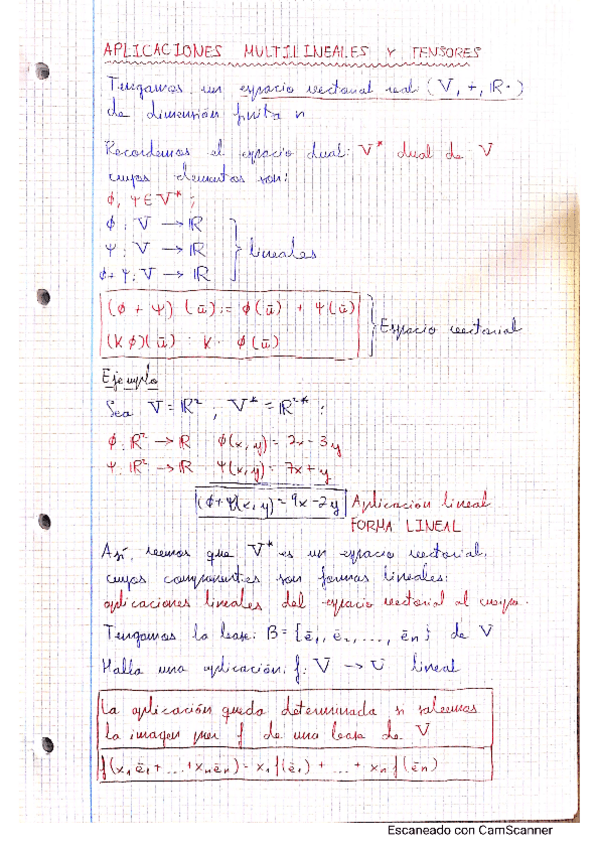 APLICACIONES MULTILINEALES Y TENSORES
Tengamos un espacio vectorial real: (V, +, ℝ·)
de dimensión finita n
Recordemos el espacio dual: V* dual de V
cuyos elementos son:
ϕ, Ψ ∈ V*;
ϕ: V → ℝ
Ψ: V → ℝ } lineales
ϕ+Ψ: V → ℝ
(ϕ + Ψ) (ū) := ϕ(ū) + Ψ(ū)
(K ϕ)(ū) = K · ϕ(ū) } Espacio vectorial
Ejemplo
Sea V = ℝ², V* = ℝ²*:
ϕ: ℝ² → ℝ ϕ(x, y) = 2x - 3y
Ψ: ℝ² → ℝ Ψ(x, y) = 7x + y
(ϕ+Ψ)(x, y) = 9x - 2y Aplicación lineal
FORMA LINEAL
Así, vemos que V* es un espacio vectorial,
cuyos componentes son formas lineales:
aplicaciones lineales del espacio vectorial al cuerpo.
Tengamos la base: B = {ē₁, ē₂, ..., ēn} de V
Halla una aplicación: f: V → U lineal
La aplicación queda determinada si sabemos
la imagen por f de una base de V
f(x₁ē₁ + ... + xnēn) = x₁f(ē₁) + ... + xn f(ēn)
Escaneado con CamScanner